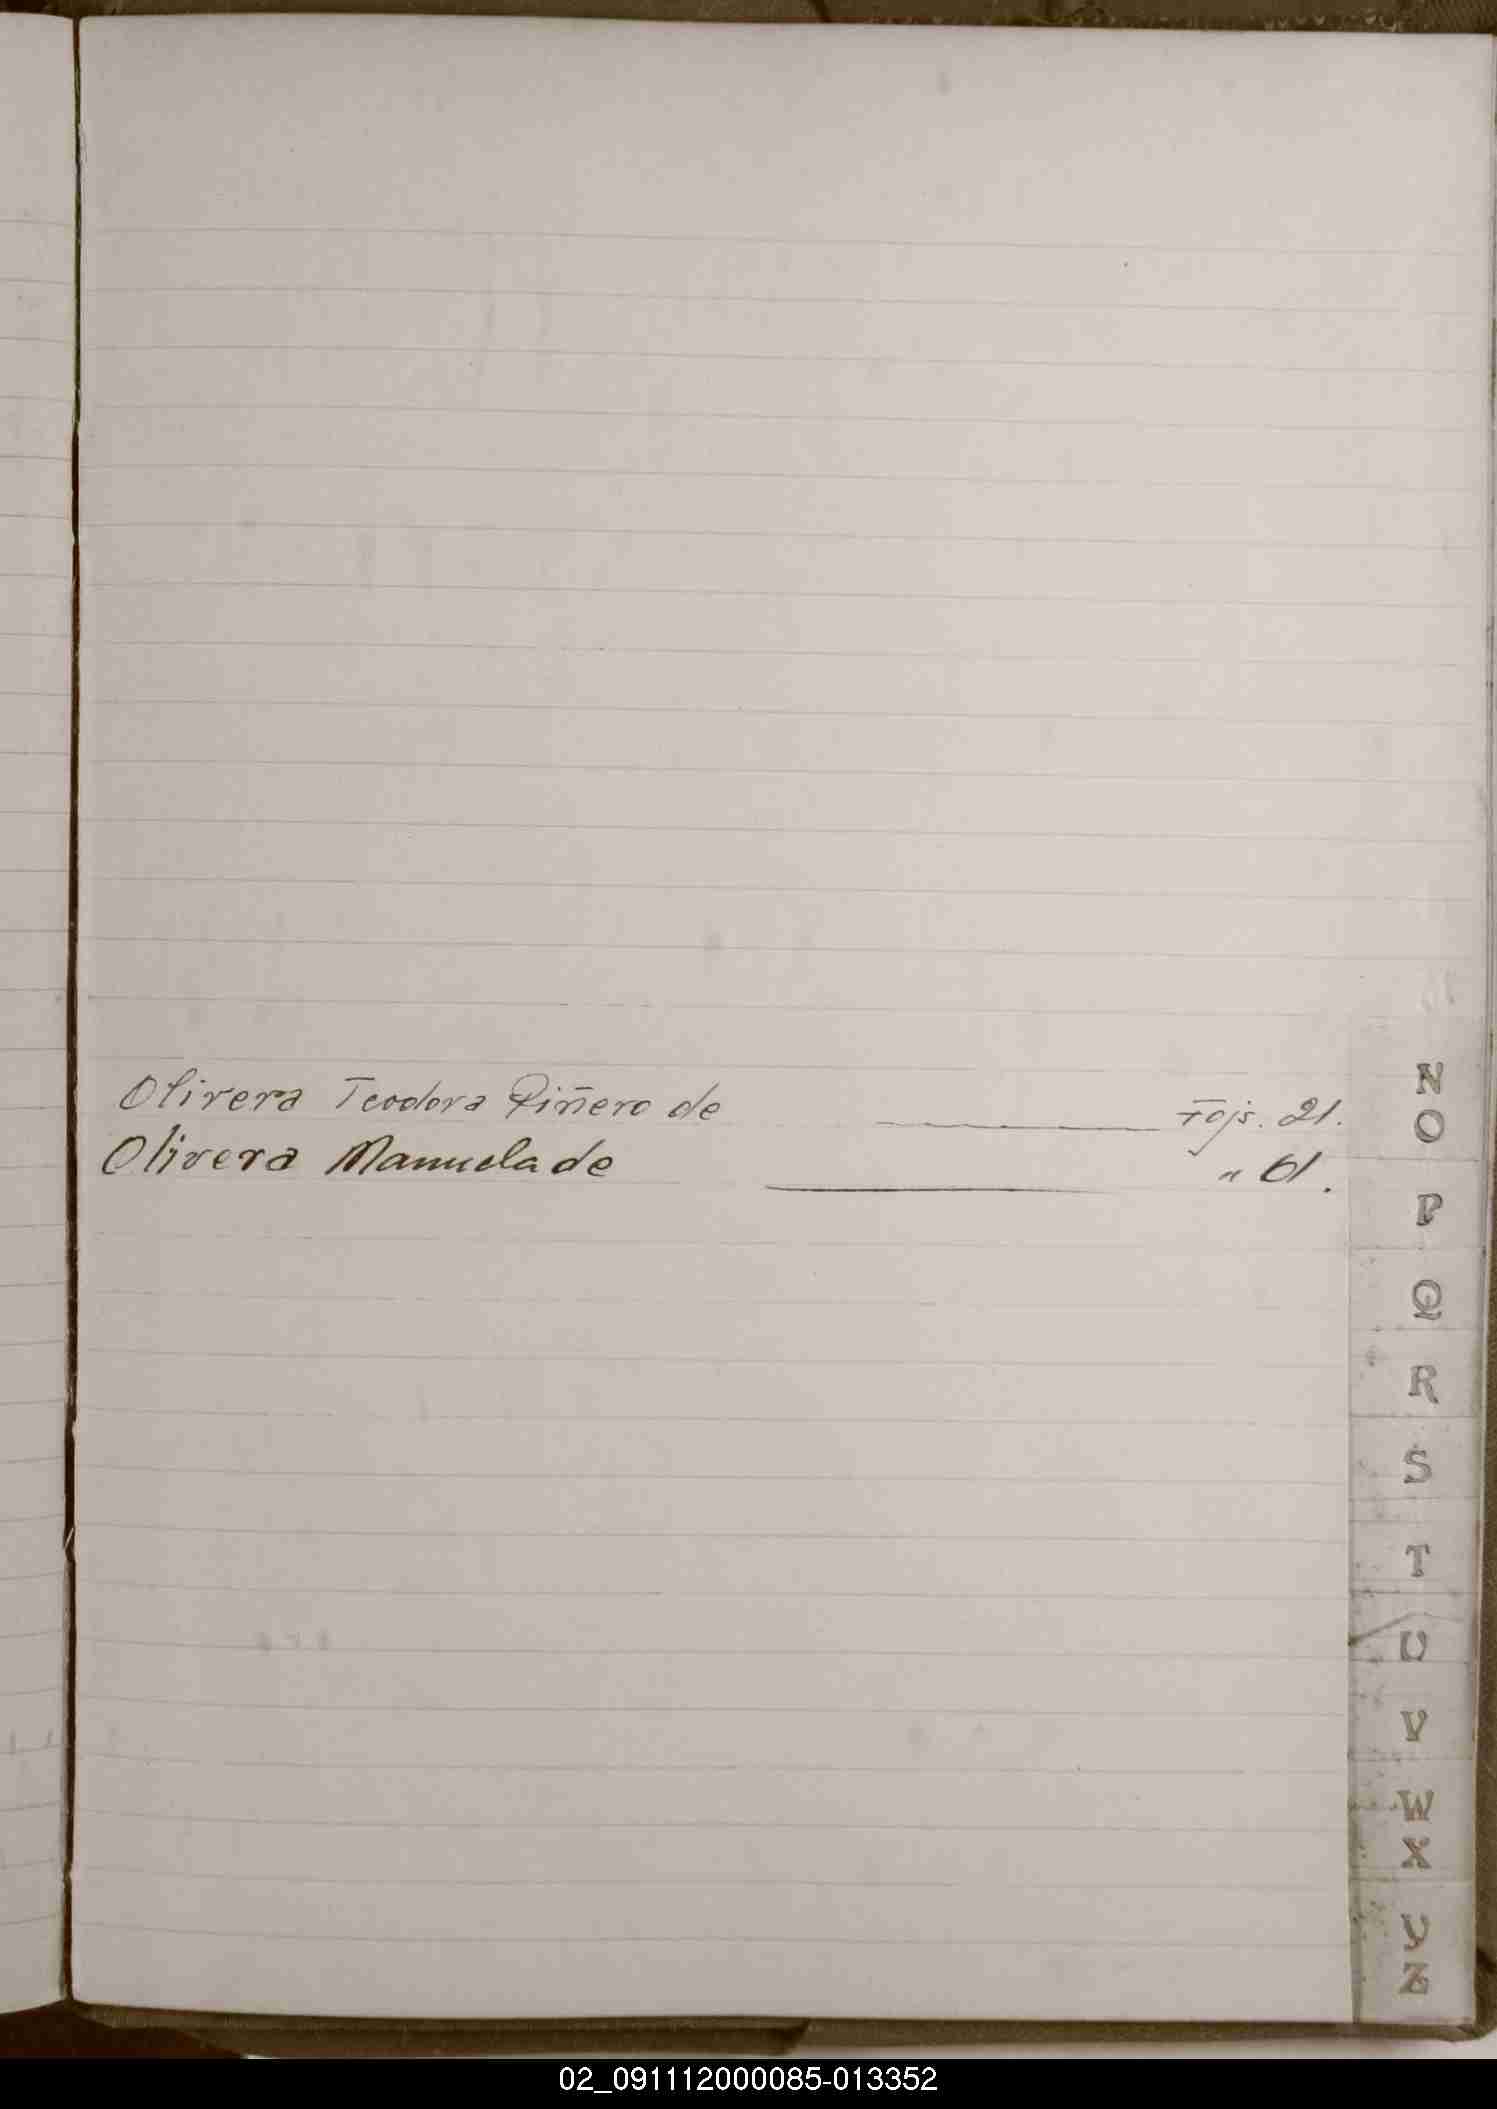 Olivera Teodora Piñero de ———— Fojs. 21.
Olivera Manuela de ———— " 61.
N
O
P
Q
R
S
T
U
V
W
X
Y
Z
02_091112000085-013352